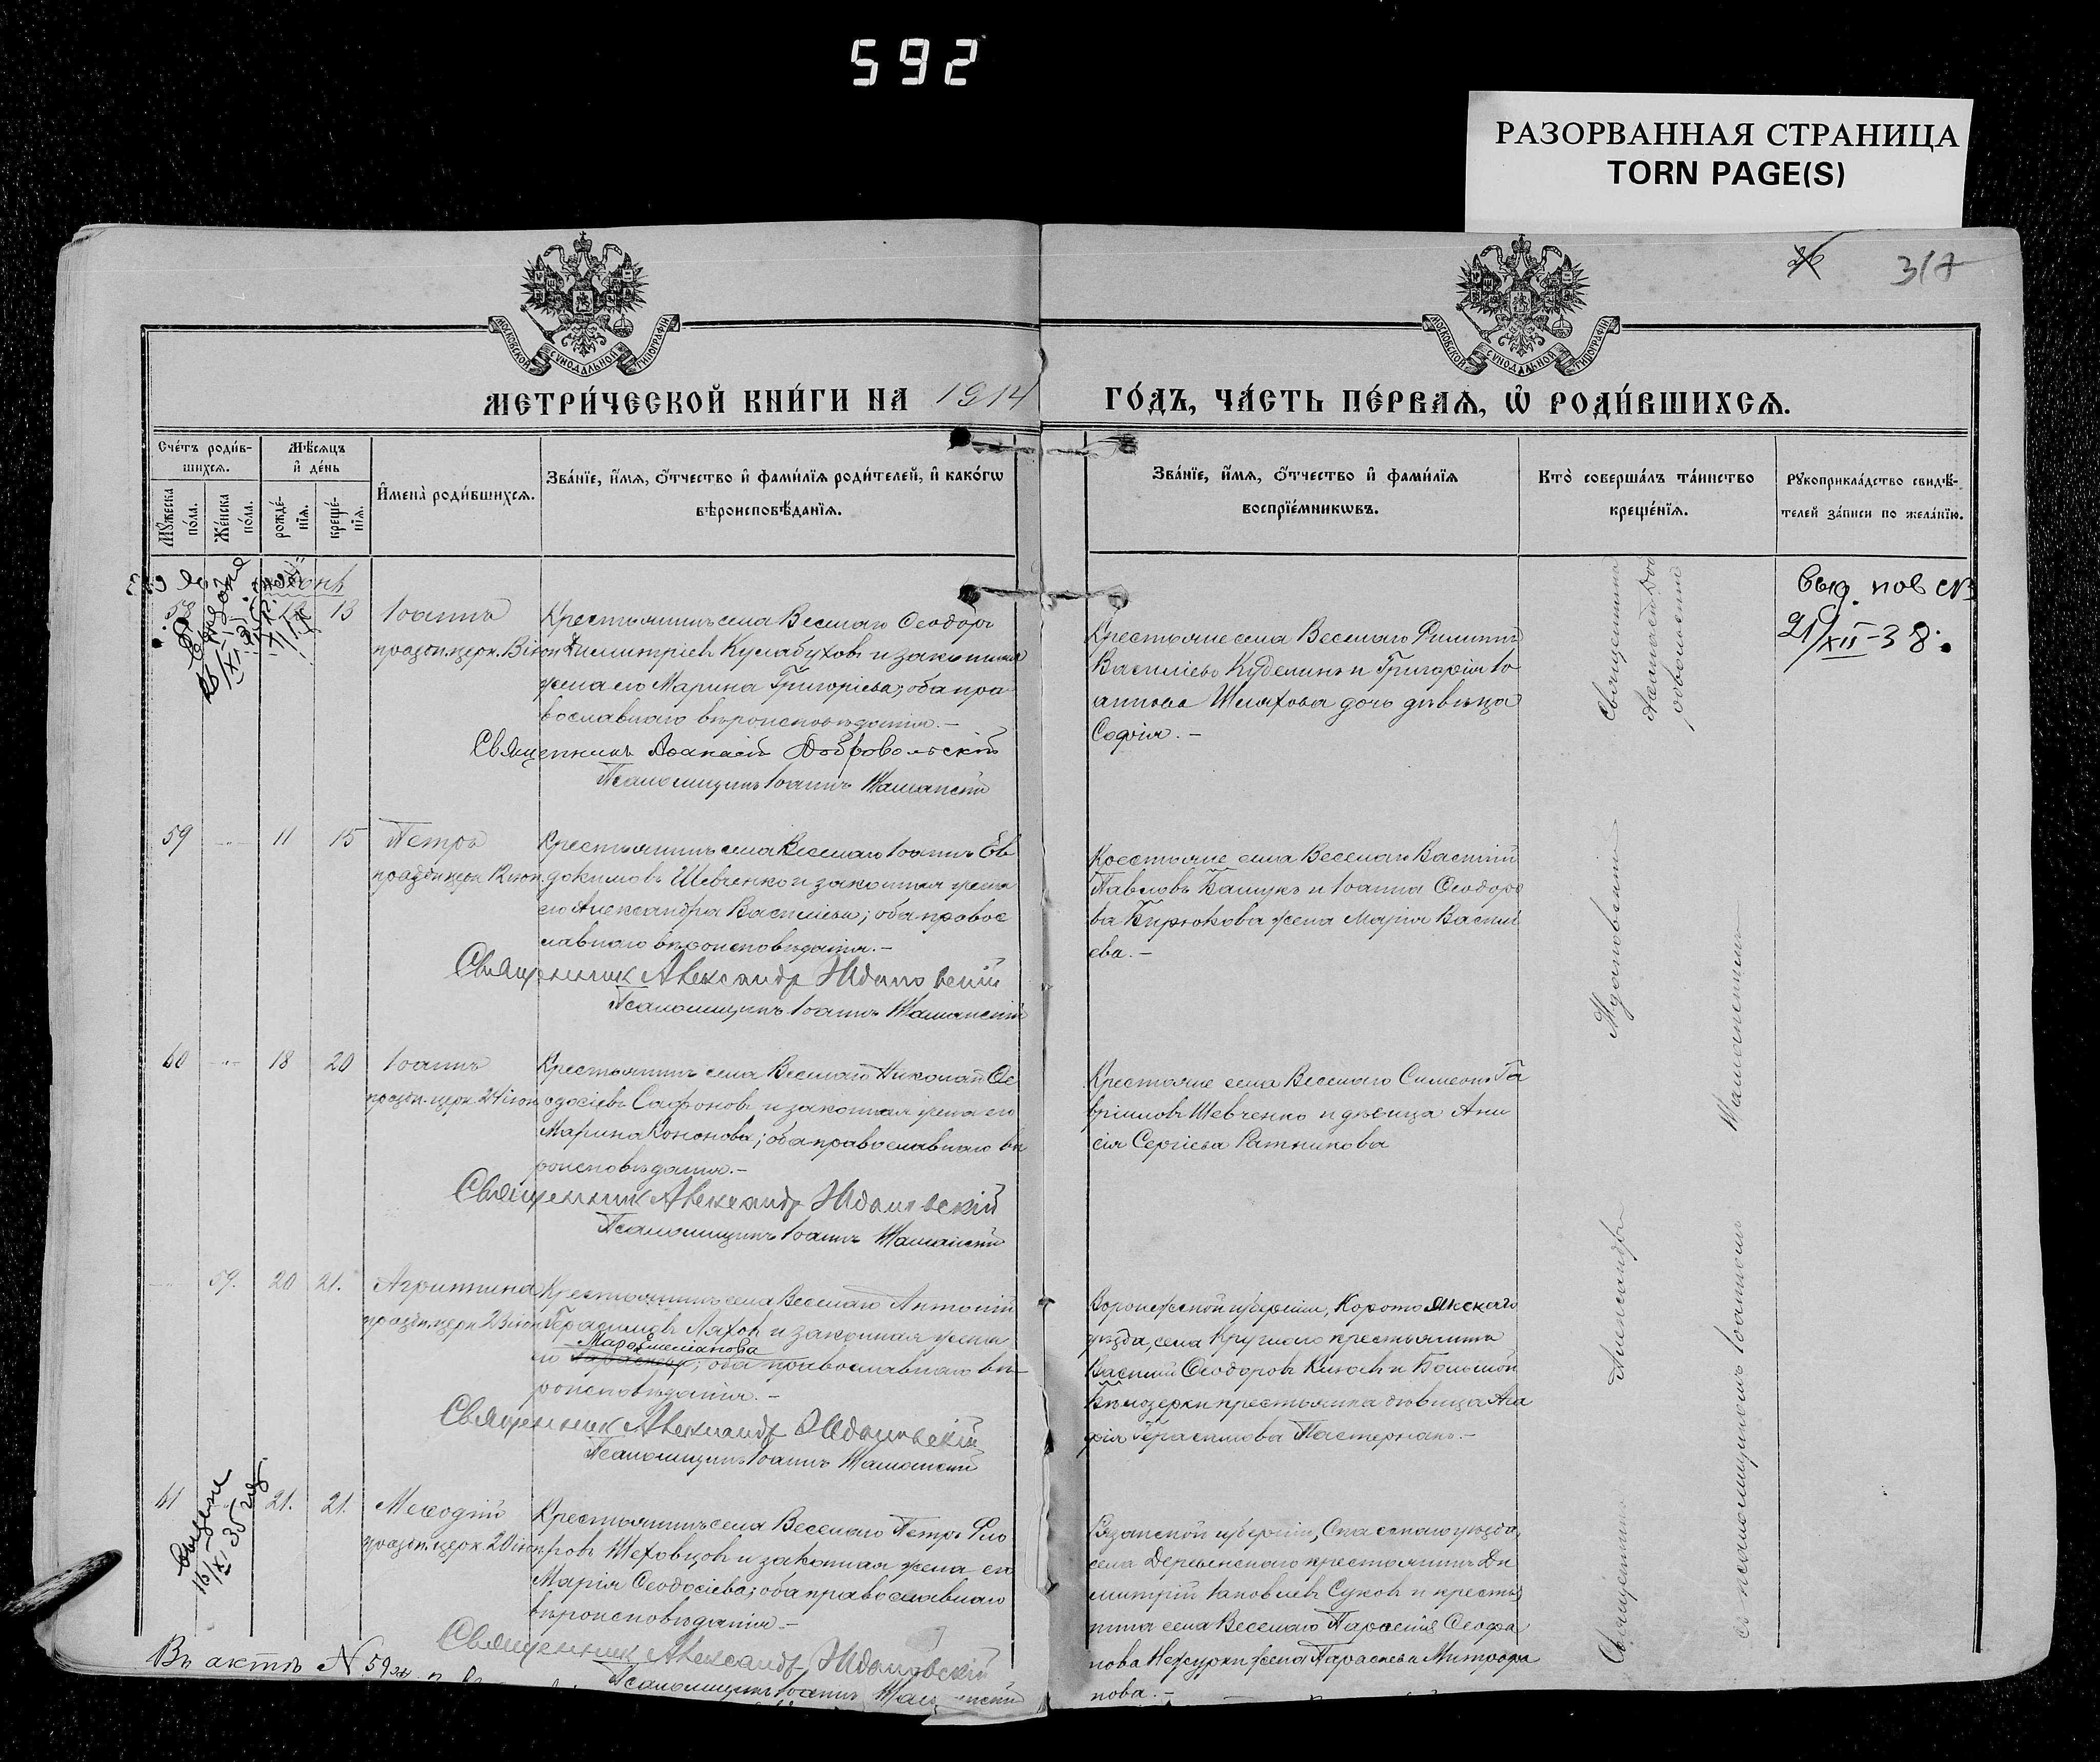 592
РАЗОРВАННАЯ СТРАНИЦА
TORN PAGE(S)
26
317
МОСКОВСКОЙ СѴНОДАЛЬНОЙ ТИПОГРАФІИ
МОСКОВСКОЙ СѴНОДАЛЬНОЙ ТИПОГРАФІИ
МЕТРИ́ЧЕСКОЙ КНИ́ГИ НА 1914 ГО́ДЪ, ЧА́СТЬ ПЕ́РВАѦ, Ѡ҆ РОДИ́ВШИХСѦ.
Сче́тъ роди́в-
шихсѧ.
Мꙋ́жеска
по́ла.
Же́нска
по́ла.
Мѣ́сѧцъ
и҆ де́нь
рожде́-
нїѧ.
креще́-
нїѧ.
И҆мена̀ роди́вшихсѧ.
Зва́нїе, и҆́мѧ, ѻ҆́тчество и҆ фами́лїѧ роди́телей, и҆ како́гѡ
вѣроисповѣ́данїѧ.
Зва́нїе, и҆́мѧ, ѻ҆́тчество и҆ фами́лїѧ
воспрїе́мникѡвъ.
Кто̀ соверша́лъ та́инство
креще́нїѧ.
Рꙋкоприкла́дство свидѣ́-
телей за́писи по жела́нїю.
58
13
Іоаннъ
праздн. церк.
Крестьянинъ села Веселаго Ѳеодоръ
Димитріевъ Кулабуховъ и законная
жена его Марина Григоріева; оба пра
вославнаго вѣроисповѣданія.–
Священникъ Аѳанасій Добровольскій
Псаломщикъ Іоаннъ
Крестьяне села Веселаго Филиппъ
Васильевъ Куделинъ и Григорія Іо
аннова Шляхова дочь дѣвица
Софія.–
Священникъ
Аѳанасій До
бровольскій
выд. пов св
21/XII-38.
59
11
15
Петръ
праздн. церк. 12 іюн.
Крестьянинъ села Веселаго Іоаннъ Ев
докимовъ Шевченко и законная жена
его Александра Васильева; оба правос
лавнаго вѣроисповѣданія.–
Священник Александр Ждановскій
Псаломщикъ Іоаннъ
Крестьяне села Веселаго Василій
Павловъ Бащукъ и Іоанна Ѳеодоро
ва Бирюкова жена Марія Васил
ева.–
60
18
20
Іоаннъ
праздн. церк. 24 іюн.
Крестьянинъ села Веселаго Николай Ѳе
одосіевъ Сафоновъ и законная жена его
Марина Кононова; оба православнаго вѣ
роисповѣданія.–
Священник Александр Ждановскій
Псаломщикъ Іоаннъ
Крестьяне села Веселаго Симеонъ Га
вріиловъ Шевченко и дѣвица Ани
сія Сергіева Ратникова
59.
20
21.
Агриппина
праздн. церк. 23 іюн.
Крестьянинъ села Веселаго Антоній
Герасимовъ Ляховъ и законная жена
Емеліанова
его оба православнаго вѣ
роисповѣданія.–
Священник Александр Ждановскій
Псаломщикъ Іоаннъ
Воронежской губерніи, Коротоякскаго
уѣзда, села Круглаго крестьянинъ
Василій Ѳеодоровъ и Большой
Бѣлозерки крестьянка дѣвица Ага
фія Герасимова Пастернакъ.–
61
21.
21.
Меѳодій
праздн. церк. 20 іюн.
выдано
16/XI 35
Крестьянинъ села Веселаго Петръ Фло
ровъ Шеховцовъ и законная жена его
Марія Ѳеодосіева; оба православнаго
вѣроисповѣданія.–
Священник Александр Ждановскій
Псаломщикъ Іоаннъ
Рязанской губерніи, Спасскаго уѣзда,
села Деревенскаго крестьянинъ Ди
митрій Іаковлевъ Суковъ и кресть
янина села Веселаго Ѳеофа
нова жена Параскева Митрофа
нова.–
Священникъ Александръ Ждановскій
съ псаломщикомъ Іоанномъ
Въ актѣ № 59